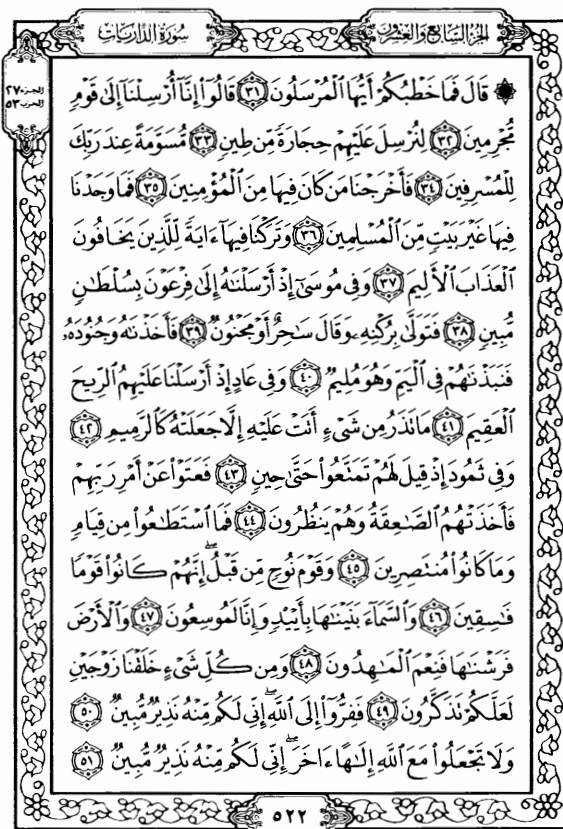 سُورَةُ الذَّارِيَاتِ
الجُزْءُ السَّابِعُ وَالعِشْرُونَ
الجزء ٢٧
الحزب ٥٣
۞ قَالَ فَمَا خَطْبُكُمْ أَيُّهَا ٱلْمُرْسَلُونَ ٣١ قَالُوٓا۟ إِنَّآ أُرْسِلْنَآ إِلَىٰ قَوْمٍ
مُّجْرِمِينَ ٣٢ لِنُرْسِلَ عَلَيْهِمْ حِجَارَةً مِّن طِينٍ ٣٣ مُّسَوَّمَةً عِندَ رَبِّكَ
لِلْمُسْرِفِينَ ٣٤ فَأَخْرَجْنَا مَن كَانَ فِيهَا مِنَ ٱلْمُؤْمِنِينَ ٣٥ فَمَا وَجَدْنَا
فِيهَا غَيْرَ بَيْتٍ مِّنَ ٱلْمُسْلِمِينَ ٣٦ وَتَرَكْنَا فِيهَآ ءَايَةً لِّلَّذِينَ يَخَافُونَ
ٱلْعَذَابَ ٱلْأَلِيمَ ٣٧ وَفِى مُوسَىٰٓ إِذْ أَرْسَلْنَـٰهُ إِلَىٰ فِرْعَوْنَ بِسُلْطَـٰنٍ
مُّبِينٍ ٣٨ فَتَوَلَّىٰ بِرُكْنِهِۦ وَقَالَ سَـٰحِرٌ أَوْ مَجْنُونٌ ٣٩ فَأَخَذْنَـٰهُ وَجُنُودَهُۥ
فَنَبَذْنَـٰهُمْ فِى ٱلْيَمِّ وَهُوَ مُلِيمٌ ٤٠ وَفِى عَادٍ إِذْ أَرْسَلْنَا عَلَيْهِمُ ٱلرِّيحَ
ٱلْعَقِيمَ ٤١ مَا تَذَرُ مِن شَىْءٍ أَتَتْ عَلَيْهِ إِلَّا جَعَلَتْهُ كَٱلرَّمِيمِ ٤٢
وَفِى ثَمُودَ إِذْ قِيلَ لَهُمْ تَمَتَّعُوا۟ حَتَّىٰ حِينٍ ٤٣ فَعَتَوْا۟ عَنْ أَمْرِ رَبِّهِمْ
فَأَخَذَتْهُمُ ٱلصَّـٰعِقَةُ وَهُمْ يَنظُرُونَ ٤٤ فَمَا ٱسْتَطَـٰعُوا۟ مِن قِيَامٍ
وَمَا كَانُوا۟ مُنتَصِرِينَ ٤٥ وَقَوْمَ نُوحٍ مِّن قَبْلُ ۖ إِنَّهُمْ كَانُوا۟ قَوْمًا
فَـٰسِقِينَ ٤٦ وَٱلسَّمَآءَ بَنَيْنَـٰهَا بِأَيْي۟دٍ وَإِنَّا لَمُوسِعُونَ ٤٧ وَٱلْأَرْضَ
فَرَشْنَـٰهَا فَنِعْمَ ٱلْمَـٰهِدُونَ ٤٨ وَمِن كُلِّ شَىْءٍ خَلَقْنَا زَوْجَيْنِ
لَعَلَّكُمْ تَذَكَّرُونَ ٤٩ فَفِرُّوٓا۟ إِلَى ٱللَّهِ ۖ إِنِّى لَكُم مِّنْهُ نَذِيرٌ مُّبِينٌ ٥٠
وَلَا تَجْعَلُوا۟ مَعَ ٱللَّهِ إِلَـٰهًا ءَاخَرَ ۖ إِنِّى لَكُم مِّنْهُ نَذِيرٌ مُّبِينٌ ٥١
٥٢٢